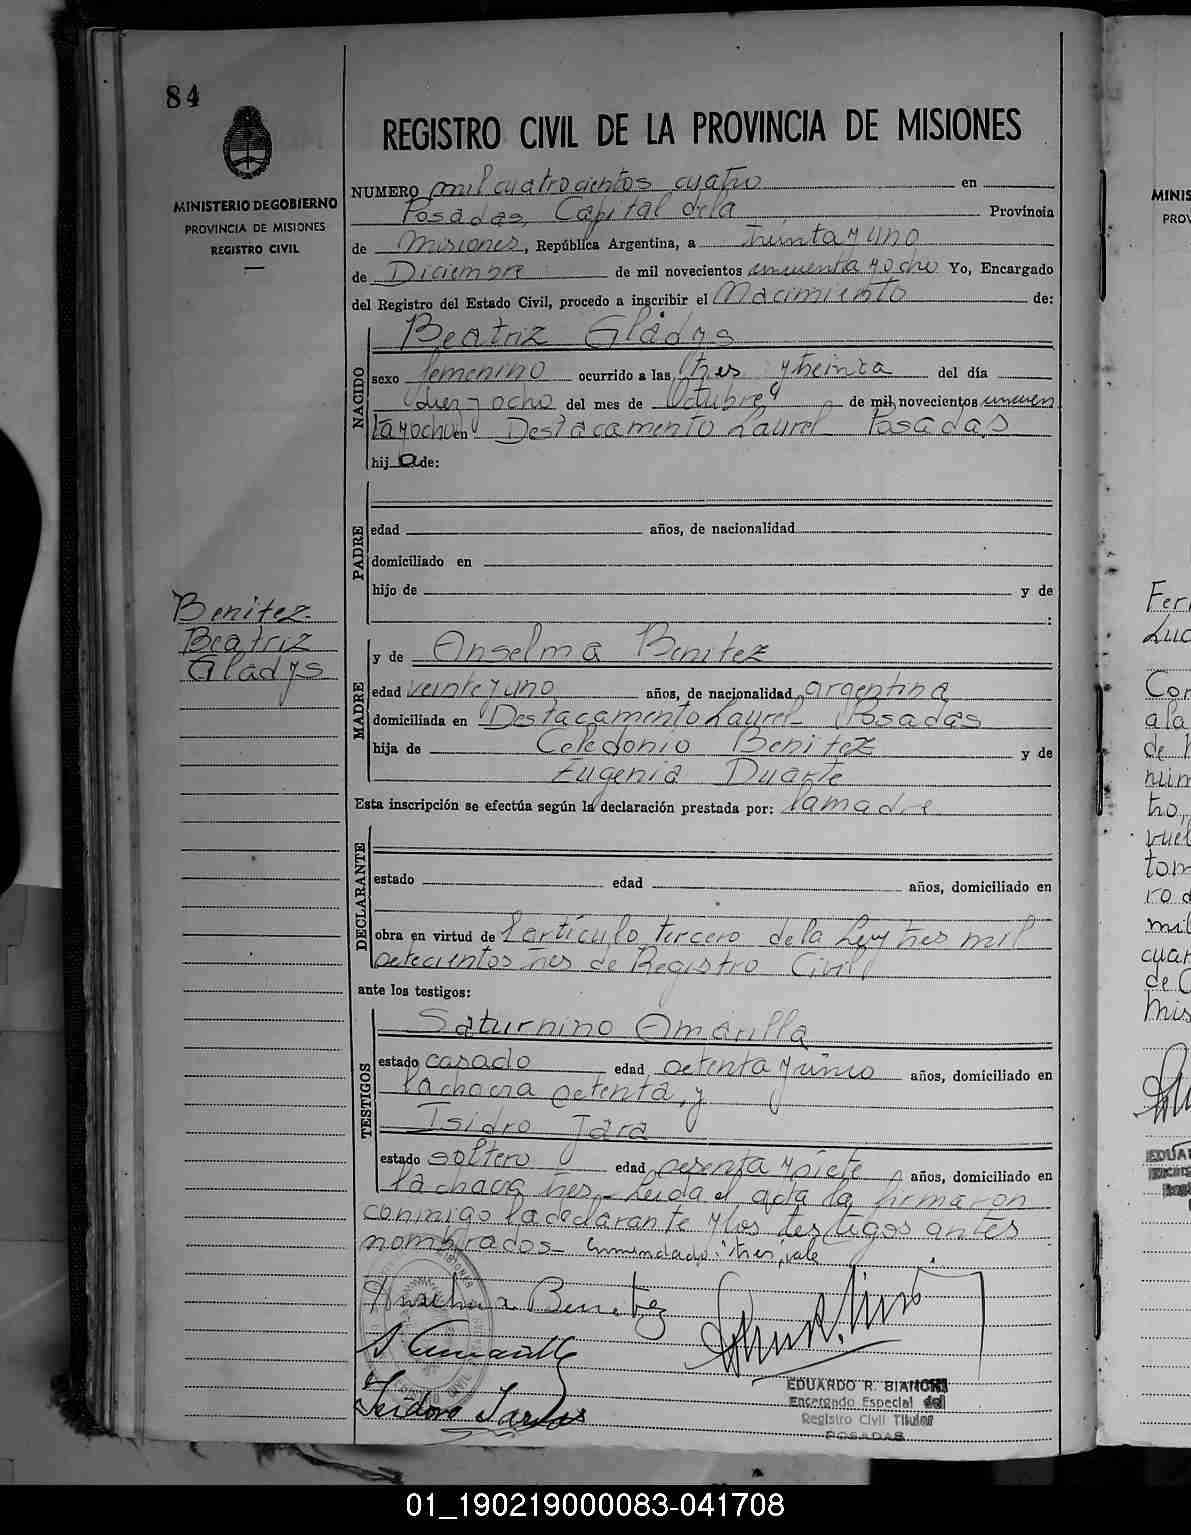 84
MINISTERIO DE GOBIERNO
PROVINCIA DE MISIONES
REGISTRO CIVIL
Benitez
Beatriz
Gladys
REGISTRO CIVIL DE LA PROVINCIA DE MISIONES
NUMERO mil cuatrocientos cuatro en
Posadas, Capital de la Provincia
de Misiones, República Argentina, a treinta y uno
de Diciembre de mil novecientos cincuenta y ocho Yo, Encargado
del Registro del Estado Civil, procedo a inscribir el Nacimiento de:
NACIDO
Beatriz Gladys
sexo femenino ocurrido a las tres y treinta del día
diez y ocho del mes de Octubre de mil novecientos cincuen
ta y ocho en Destacamento Laurel Posadas
hij a de:
PADRE
edad años, de nacionalidad
domiciliado en
hijo de y de
:
MADRE
y de Anselma Benitez
edad veinte y uno años, de nacionalidad argentina
domiciliada en Destacamento Laurel Posadas
hija de Celedonio Benitez y de
Eugenia Duarte
Esta inscripción se efectúa según la declaración prestada por: la madre
DECLARANTE
estado edad años, domiciliado en
obra en virtud de l artículo tercero de la Ley tres mil
setecientos tres de Registro Civil
ante los testigos:
TESTIGOS
Saturnino Amarilla
estado casado edad setenta y cinco años, domiciliado en
la chacra setenta, y
Isidro Jara
estado soltero edad sesenta y siete años, domiciliado en
la chacra tres,- Leida el acta la firmaron
conmigo la declarante y los testigos antes
nombrados- Enmendado: tres, vale
Anselma Benitez
S Amarilla
Isidoro Jara
EDUARDO R. BIANCHI
Encargado Especial del
Registro Civil Titular
POSADAS
MINIS
PROV
Fer
Luc
Con
a la
de
núm
tro,
vuel
tom
ro d
mil
cuar
de O
Mis
EDUAR
01_190219000083-041708